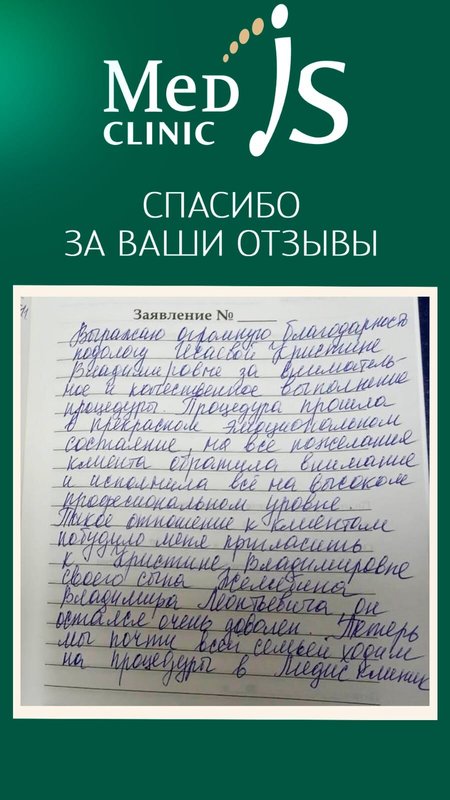 MED IS
CLINIC
СПАСИБО
ЗА ВАШИ ОТЗЫВЫ
Заявление № ____
Выражаю огромную благодарность
подологу Кристине
Владимировне за вниматель-
ное и качественное выполнение
процедуры. Процедура прошла
в прекрасном эмоциональном
состояние, на все пожелания
клиента обратила внимание
и исполнила всё на высоком
профессиональном уровне.
Такое отношение к клиентам
побудило меня пригласить
к Кристине Владимировне
своего сына
Владимира Леонтьевича, он
остался очень доволен. Теперь
мы почти всей семьёй ходим
на процедуры в Медис клиник